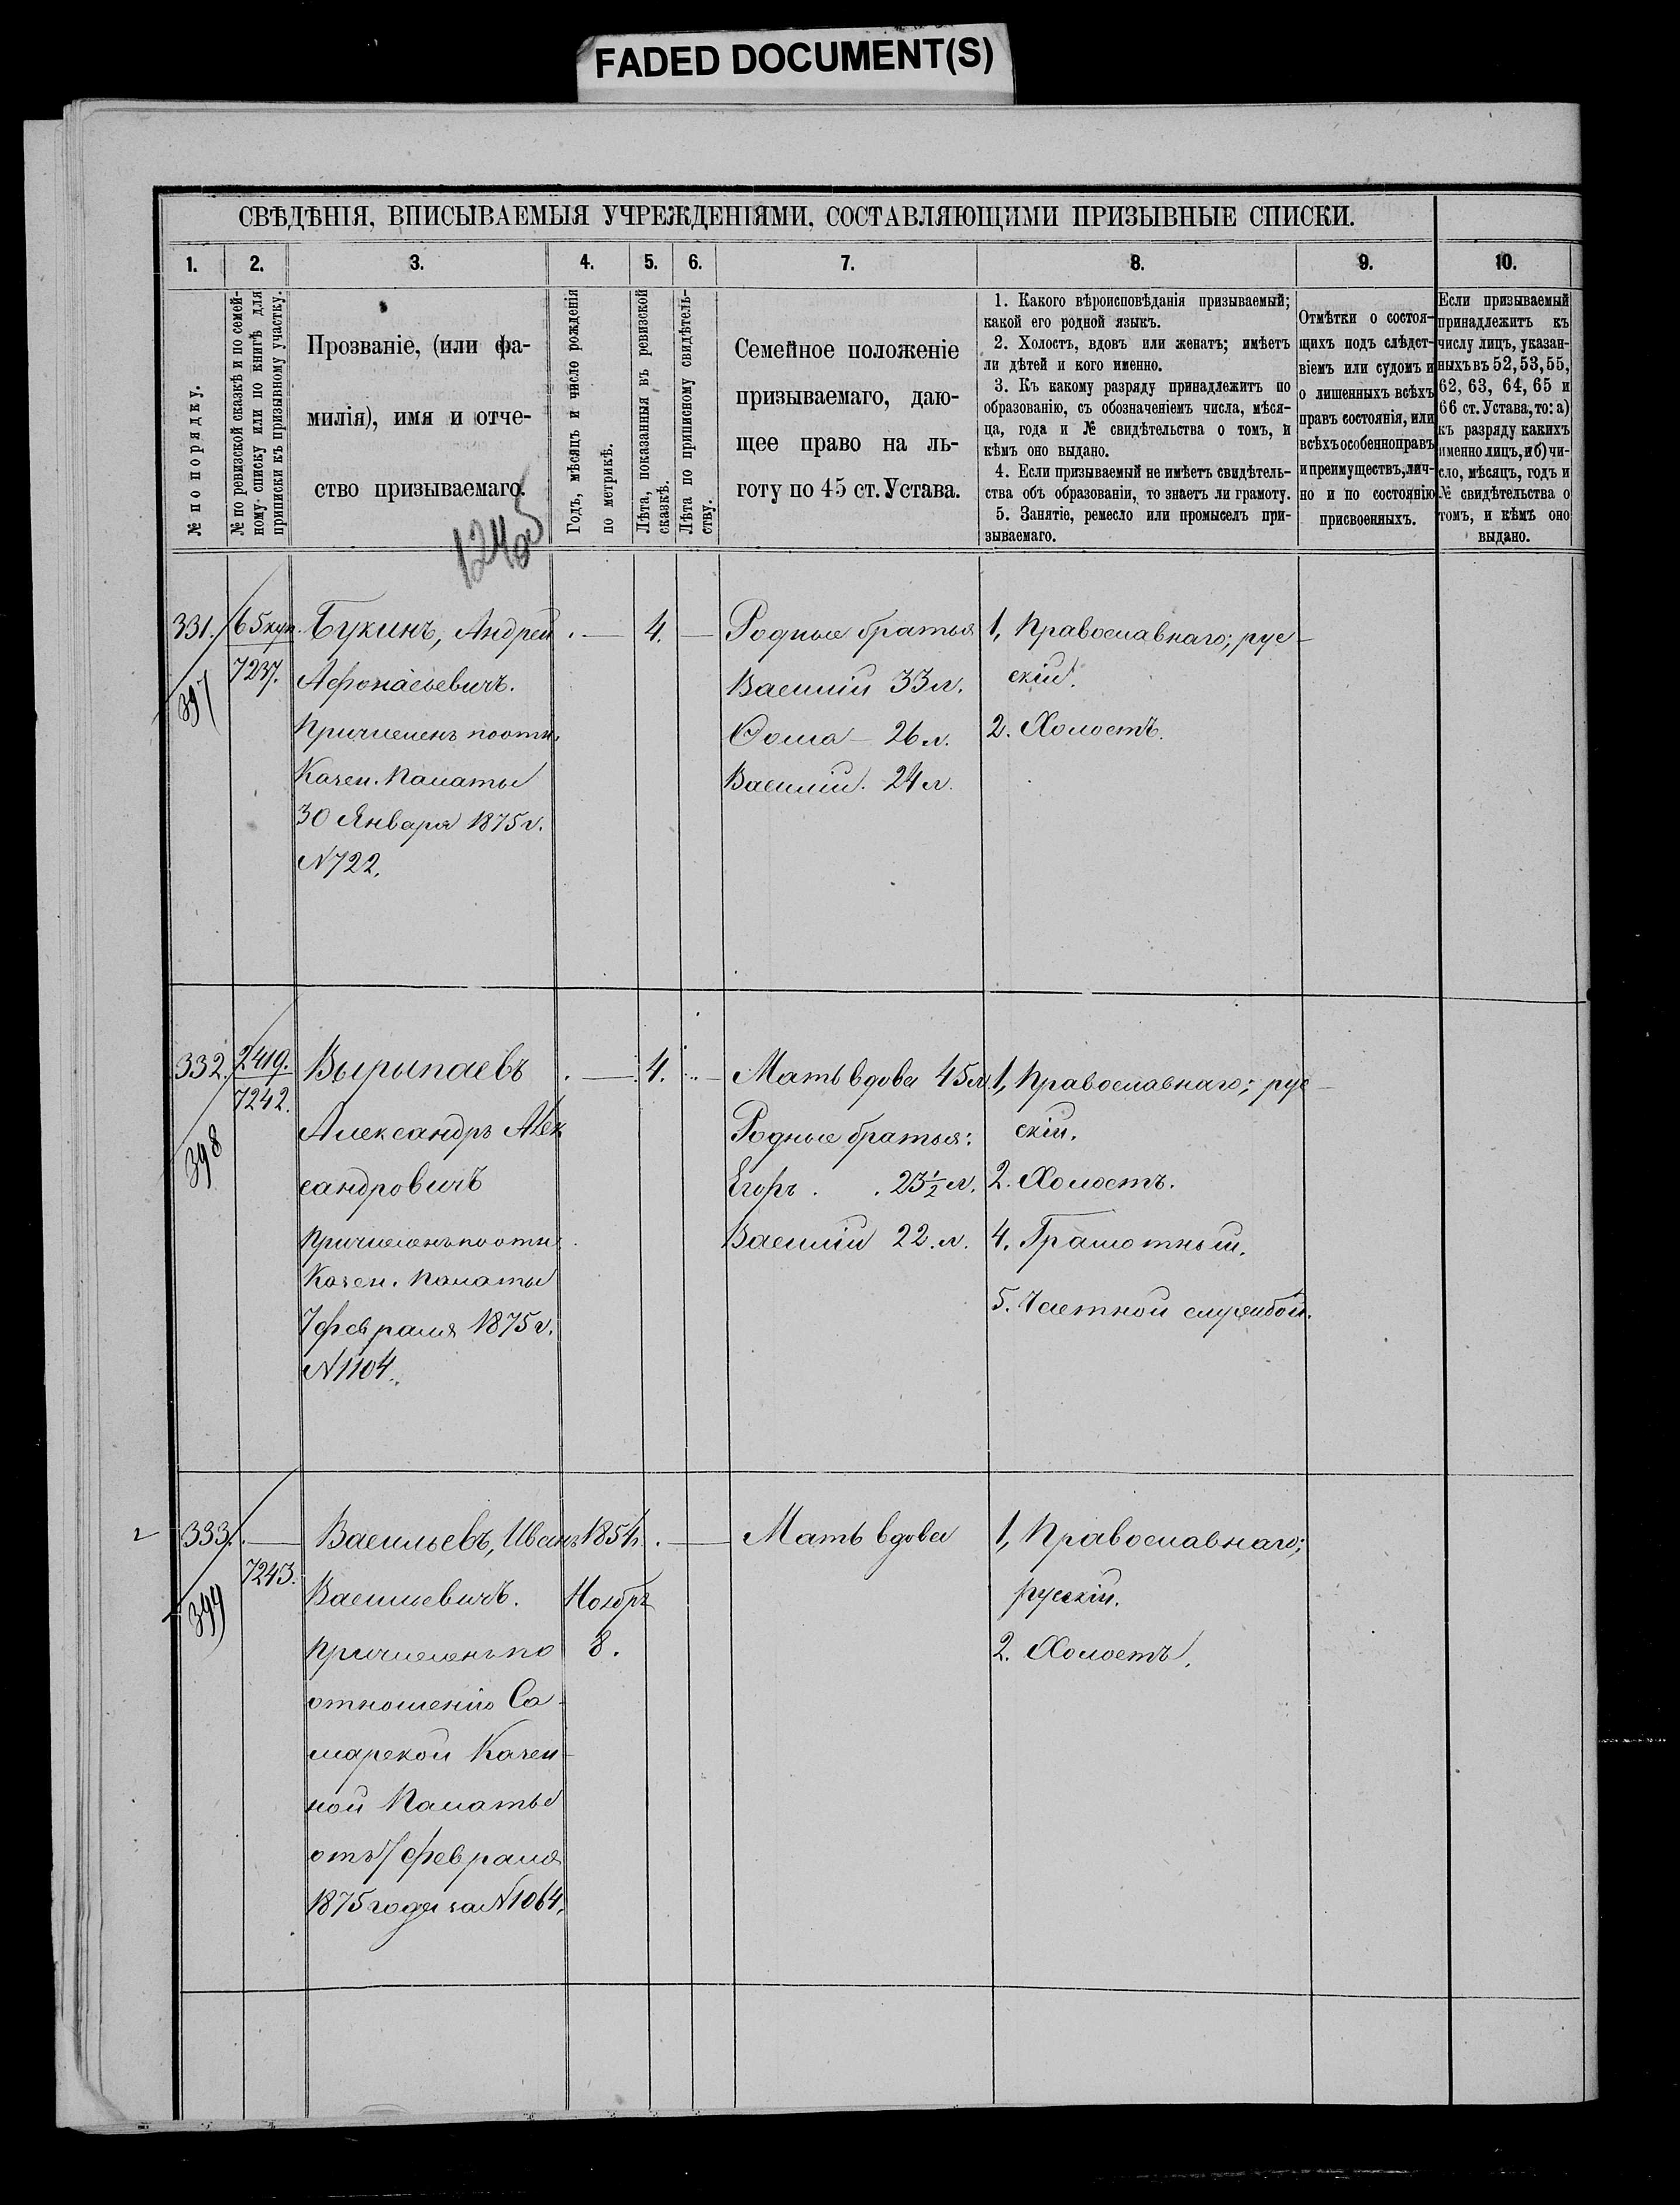 FADED DOCUMENT(S)
СВѢДѢНІЯ, ВПИСЫВАЕМЫЯ УЧРЕЖДЕНІЯМИ, СОСТАВЛЯЮЩИМИ ПРИЗЫВНЫЕ СПИСКИ.
1. 2. 3. 4. 5. 6. 7. 8. 9. 10.
№ по порядку.
№ по ревизской сказкѣ и по семей-
ному списку или по книгѣ для
приписки къ призывному участку.
Прозваніе, (или фа-
милія), имя и отче-
ство призываемаго.
Годъ, мѣсяцъ и число рожденія
по метрикѣ.
Лѣта, показанныя въ ревизской
сказкѣ.
Лѣта по приписному свидѣтель-
ству.
Семейное положеніе
призываемаго, даю-
щее право на ль-
готу по 45 ст. Устава.
1. Какого вѣроисповѣданія призываемый;
какой его родной языкъ.
2. Холостъ, вдовъ или женатъ; имѣетъ
ли дѣтей и кого именно.
3. Къ какому разряду принадлежитъ по
образованію, съ обозначеніемъ числа, мѣся-
ца, года и № свидѣтельства о томъ, и
кѣмъ оно выдано.
4. Если призываемый не имѣетъ свидѣтель-
ства объ образованіи, то знаетъ ли грамоту.
5. Занятіе, ремесло или промыселъ при-
зываемаго.
Отмѣтки о состоя-
щихъ подъ слѣдст-
віемъ или судомъ и
о лишенныхъ всѣхъ
правъ состоянія, или
всѣхъ особенно правъ
и преимуществъ, лич-
но и по состоянію
присвоенныхъ.
Если призываемый
принадлежитъ къ
числу лицъ, указан-
ныхъ въ 52, 53, 55,
62, 63, 64, 65 и
66 ст. Устава, то: а)
къ разряду какихъ
именно лицъ, и б) чи-
сло, мѣсяцъ, годъ и
№ свидѣтельства о
томъ, и кѣмъ оно
выдано.
331.
397
65 куп.
7237.
Букинъ, Андрей
Афонасьевичъ.
Причисленъ по отн.
Казен. Палаты
30 Января 1875 г.
N 722.
4.
Родные братья
Василій 33 л.
Фома - 26 л.
Василій. 24 л.
1, Православнаго; рус-
скій.
2. Холостъ.
332.
398
2419.
7242.
Вырыпаевъ
Александръ Алек
сандровичъ
Причисленъ по отн.
Казен. Палаты
7 февраля 1875 г.
N 1104.
4.
Мать вдова 45 л
Родные братья:
Егоръ . . 23½ л.
Василій 22. л.
1, Православнаго; рус-
скій.
2. Холостъ.
4. Грамотный.
5. Частной службой.
333.
399
7243.
Васильевъ, Иванъ
Васильевичъ.
причисленъ по
отношенію Са-
марской Казен-
ной Палаты
отъ 7 февраля
1875 года за N 1064.
1854 г.
Ноябрь
8.
Мать вдова
1, Православнаго;
русскій.
2. Холостъ.